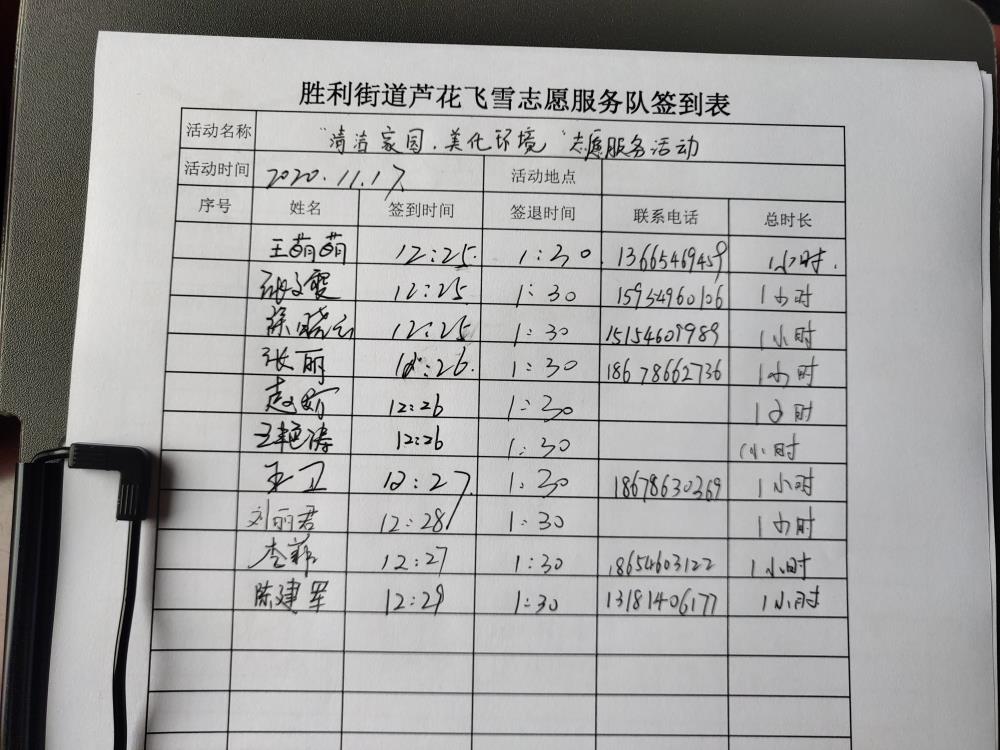 胜利街道芦花飞雪志愿服务队签到表
活动名称 "清洁家园.美化环境"志愿服务活动
活动时间 2020.11.17 活动地点
序号 姓名 签到时间 签退时间 联系电话 总时长
王萌萌 12:25 1:30 13665469459 1小时.
张文霞 12:25 1:30 15954960106 1小时
徐晓云 12:25 1:30 15154609989 1小时
张丽 12:26 1:30 18678662736 1小时
赵 12:26 1:30 1小时
王艳涛 12:26 1:30 1小时
王卫 12:27 1:30 18678630369 1小时
刘丽君 12:28 1:30 1小时
李菲 12:27 1:30 18654603122 1小时
陈建军 12:29 1:30 13181406177 1小时